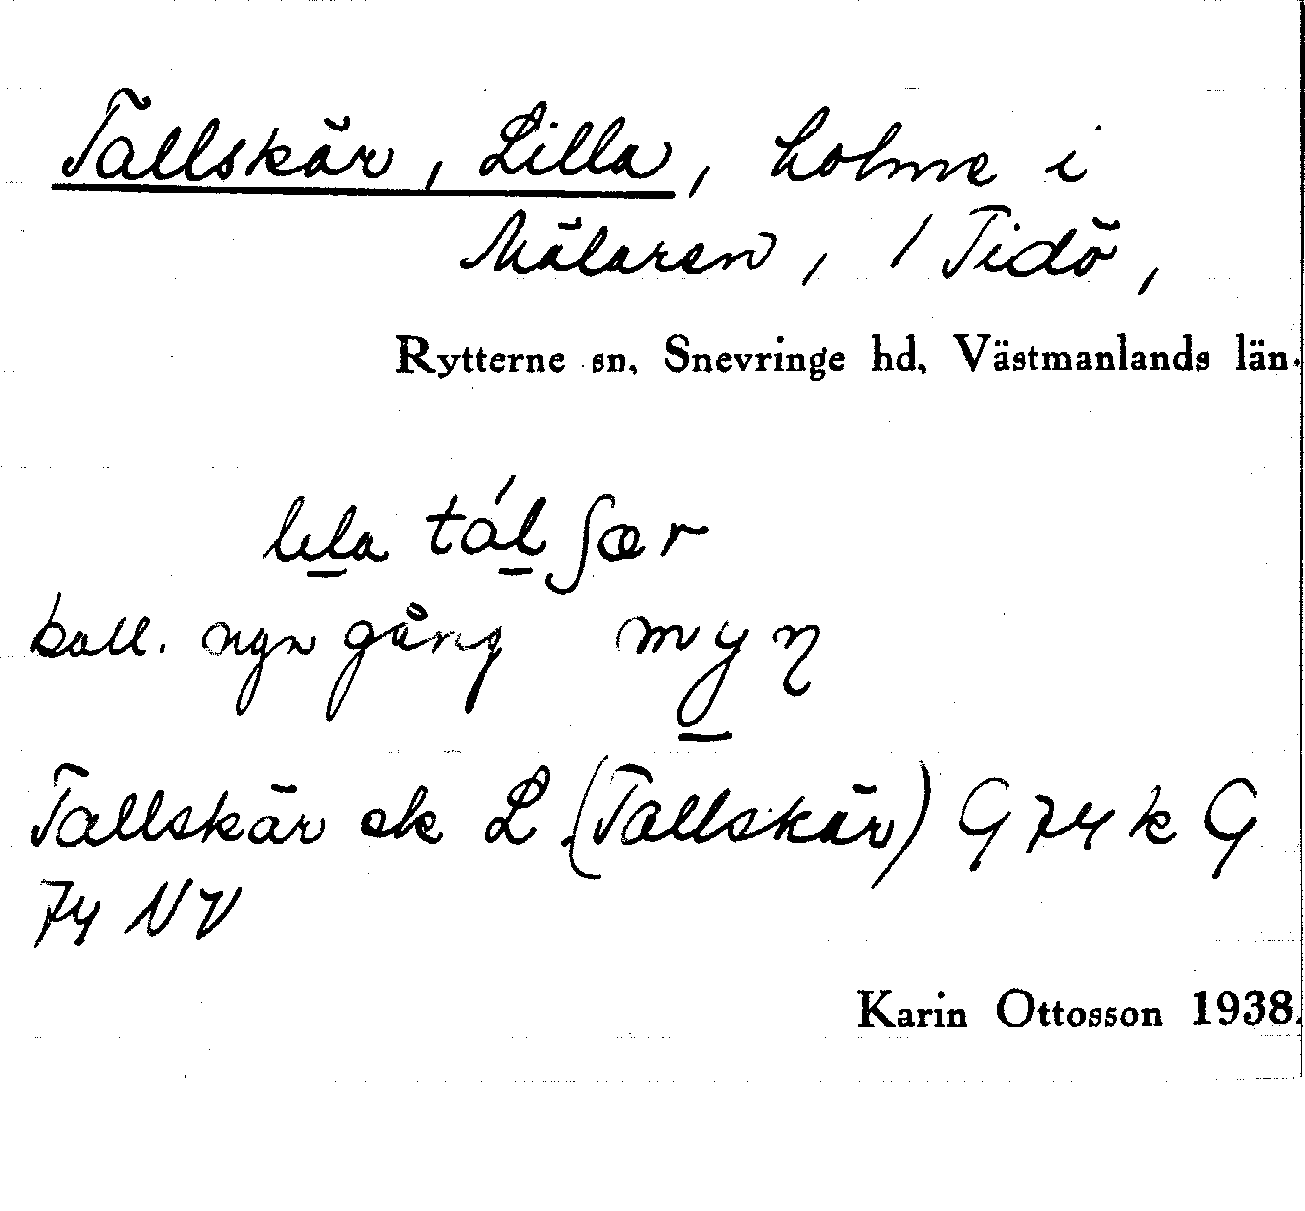 Tallskär, Lilla, holme i
Mälaren, / Tidö,
Rytterne sn, Snevringe hd, Västmanlands län.
lıla tálʃær
kall. ngn gång myŋ
Tallskär ek L (Tallskär) G 74 k G
74 NV
Karin Ottosson 1938.